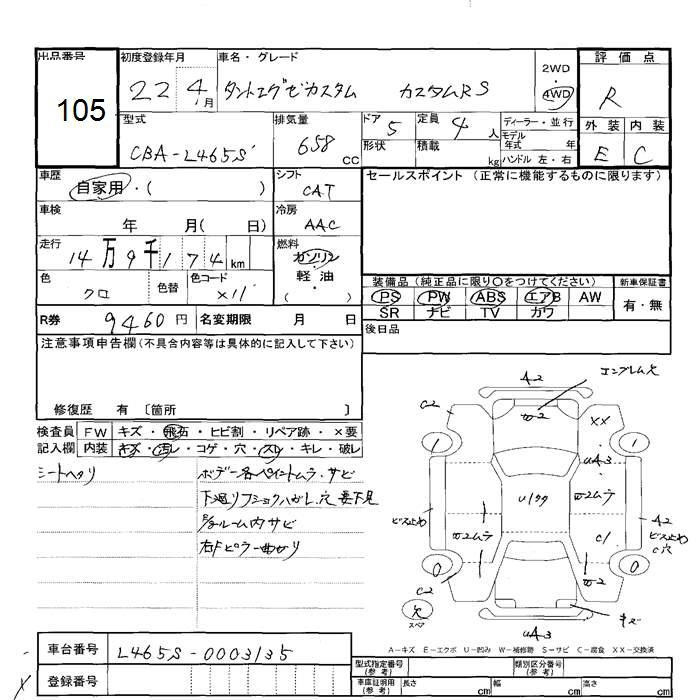 出品番号 初度登録年月 車名・グレード 2WD 評価点
105 22 4月 タントエグゼカスタム カスタムRS 4WD R
型式 排気量 ドア 5 定員 4人 ディーラー・並行 外装 内装
モデル年式 年
CBA-L465S 658 CC 形状 積載 kg ハンドル 左・右 E C
車歴 シフト セールスポイント (正常に機能するものに限ります)
自家用・( ) CAT
車検 年 月( 日) 冷房 AAC
走行 14万9千174km 燃料 ガソリン・軽油 ( )
色 クロ 色替 色コード X11
装備品(純正品に限り○をつけてください) 新車保証書
PS PW ABS エアB AW 有・無
SR ナビ TV カワ
R券 9460円 名変期限 月 日 後日品
注意事項申告欄(不具合内容等は具体的に記入して下さい)
修復歴 有 〔箇所 〕
検査員 FW キズ・飛石・ヒビ割・リペア跡・×要
記入欄 内装 キズ・汚レ・コゲ・穴・スレ・キレ・破レ
シートヘタリ ボデー各ペイントムラ・サビ
下廻リ ハガレ穴 要下見
ルーム内サビ
右Fピラー曲がり
A2 エンブレム欠
C2 XX
1 1
UA3
U1タタ
ビス止め A2
ビス止め
C穴
C1
0 0
C2
欠
スペア
キズ
UA3
A-キズ E-エクボ U-凹み W-補修跡 S-サビ C-腐食 XX-交換済
車台番号 L465S-0003135
登録番号
型式指定番号(参考) 類別区分番号(参考)
車庫証明用(参考) 長さ cm 幅 cm 高さ cm